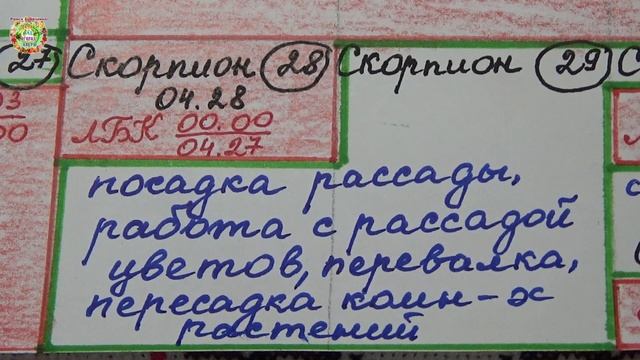 27 Скорпион 28 Скорпион 29 С
04.28
ЛБК 00.00
04.27
посадка рассады,
работа с рассадой
цветов, перевалка,
пересадка комн-х
растений